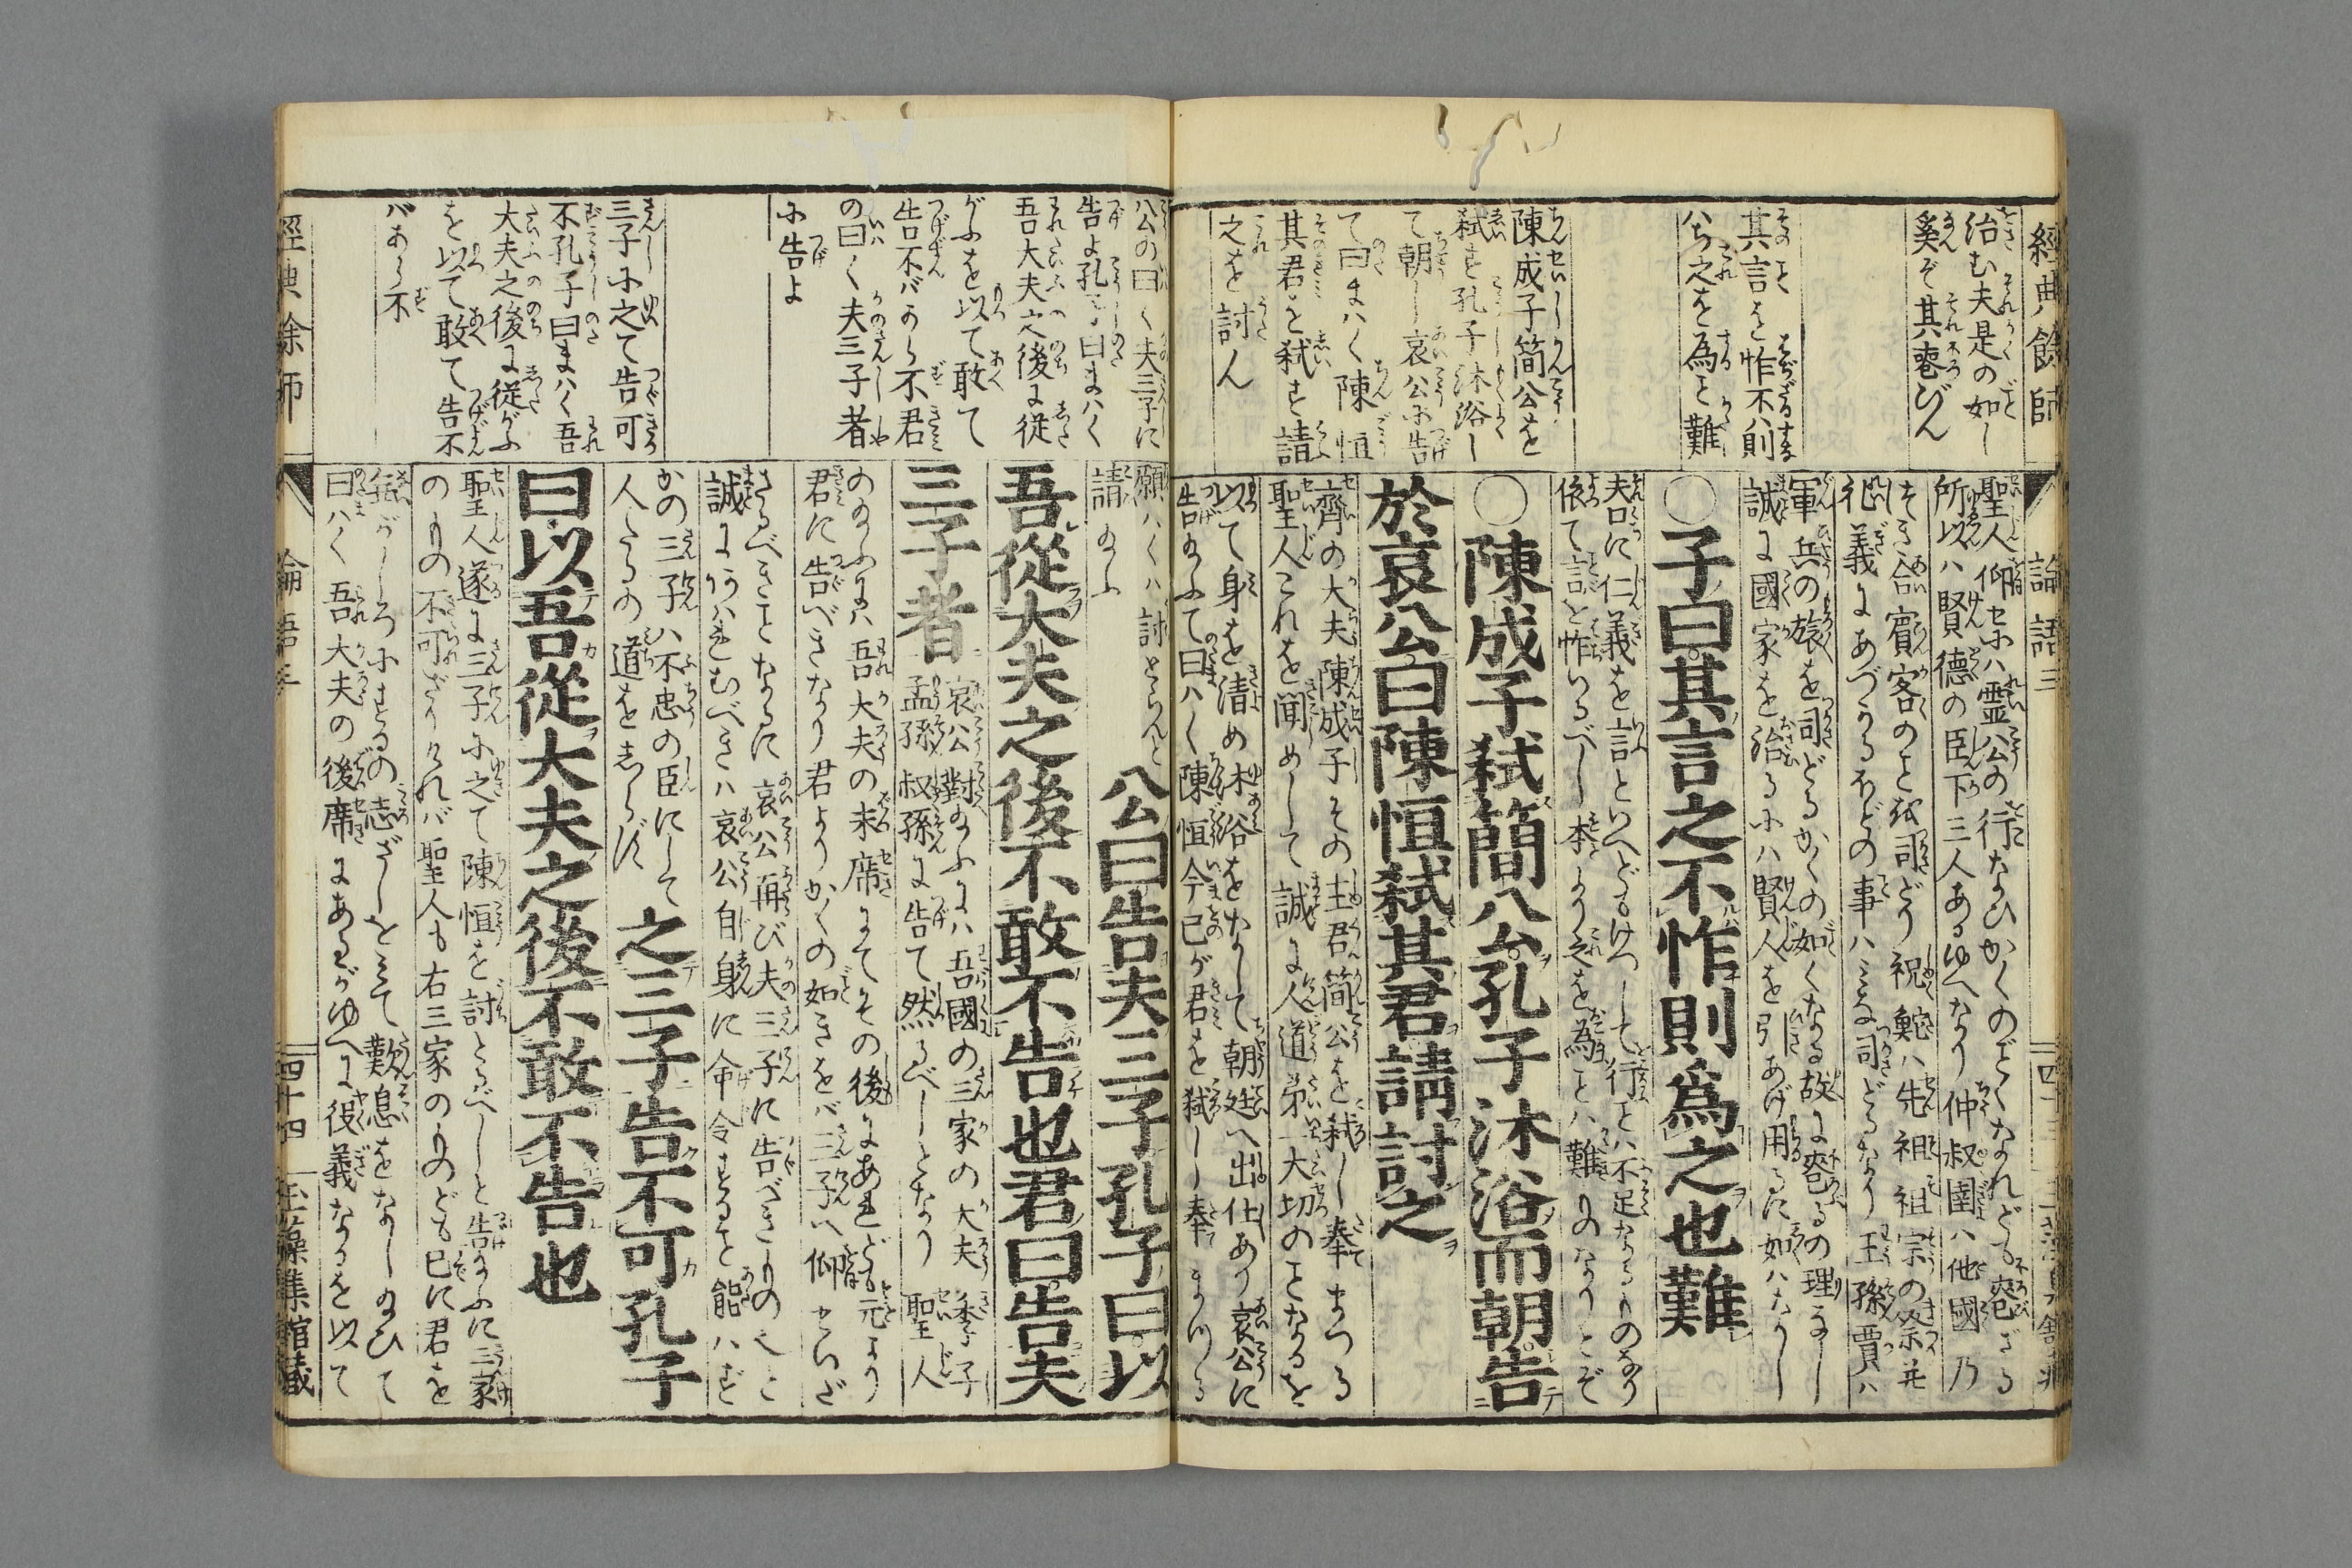 經典餘師
論語三
治む夫是の如し
奚ぞ其喪びん
聖人仰せに八霊公の行なひかくのごくなれども喪びざる
所以ハ賢德の臣下三人あるゆへなり仲叔圉ハ他國乃
賓客のことを司どり祝鮀ハ先祖祖宗の祭并
礼義にあづかるほどの事ハみな司どるなり王孫賈ハ
軍兵の旅を司どるかくの如くなる故に喪るの理なし
誠に國家を治るにハ賢人を引あげ用るに如ハなし
其言を怍不ハ則
ハち之を為こと難
〇子曰其言之不怍則爲之也難
夫口に仁義を言といへどもけつして行とハ不足なるものなり
依て言を怍いるべし本より之を為ことハ難ものなりとぞ
陳成子簡公を
弑す孔子沐浴し
て朝し哀公に告
て曰まハく陳恒
其君を弑す請
之を討ん
〇陳成子弑簡公孔子沐浴而朝告
於哀公曰陳恒弑其君請討之
齊の大夫陳成子その主君簡公を弑し奉まつる
聖人これを聞めして誠に人道第一大切のことなるを
以て身を清め沐浴をなして朝廷へ出仕あり哀公に
告給ふて曰ハく陳恒今己が君を弑し奉まつる
公の曰く夫三子に
告よ孔子曰まハく
吾大夫之後に従
がふを以て敢て
告不バあら不君
の曰く夫三子者
に告よ
願ハくハ討とらんと
請給ふ
公曰告夫三子孔子曰以
吾從大夫之後不敢不告也君曰告夫
三子者
哀公對給ふにハ吾國の三家の大夫季子
孟孫叔孫に告て然るべしとなり聖人
のふにハ吾大夫の末席にてその後にあれども元より
君に告べきなり君よりかくの如きをバ三子へ仰せいだ
さるべきことなるに哀公再び夫三子に告べきものと
誠にあハれむべきハ哀公自身に命令することハ能ハず
かの三子ハ不忠の臣にして
人たるの道をしらず
三子に之て告可
不孔子曰まハく吾
大夫之後に従がふ
を以て敢て告不
バあら不
之三子告不可孔子
曰以吾從大夫之後不敢不告也
聖人遂に三子に之て陳恒を討とるべしと告給ふに三家
のもの不可ざりければ聖人も右三家のものども已に君を
無がしろにするの志ざしをみて歎息をなし給ひて
曰ハく吾大夫の後席にあるがゆへに役義なるを以て
經典餘師
論語三
四十四
玉藻集館藏